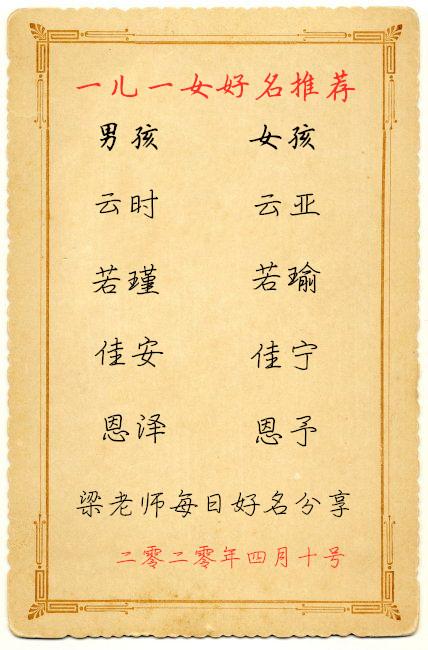 一儿一女好名推荐
男孩 女孩
云时 云亚
若瑾 若瑜
佳安 佳宁
恩泽 恩予
梁老师每日好名分享
二零二零年四月十号